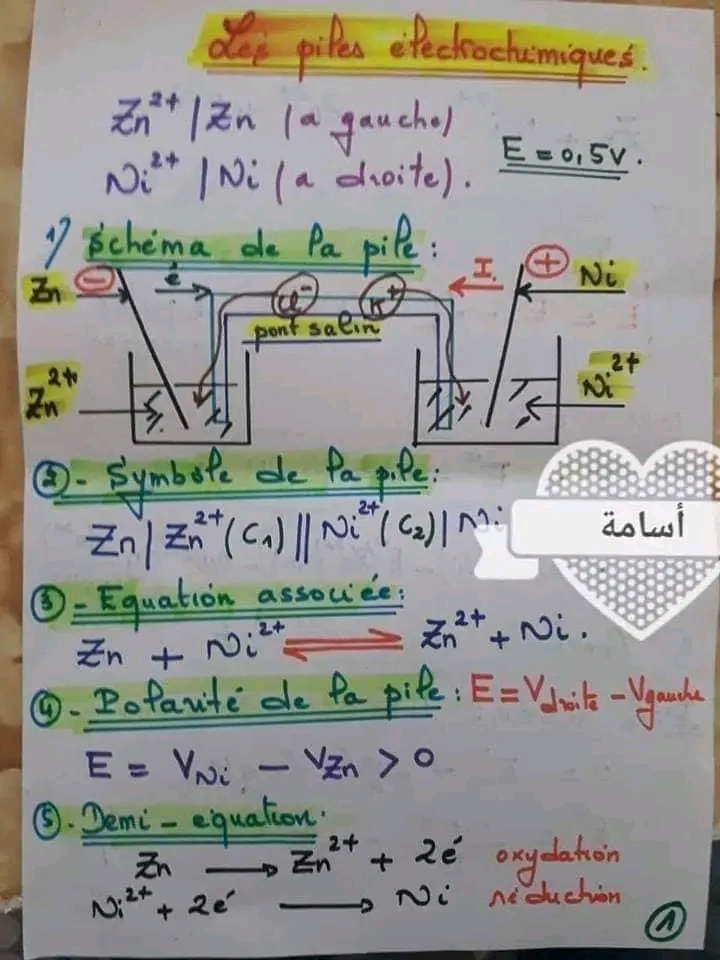 Les piles électrochimiques.
Zn²⁺ | Zn (a gauche)
E = 0,5V.
Ni²⁺ | Ni (a droite).
1) Schéma de la pile :
Zn - é I + Ni
Cl⁻ K⁺
pont salin
Zn²⁺ Ni²⁺
②- Symbole de la pile:
Zn | Zn²⁺ (C₁) || Ni²⁺ (C₂) | Ni
أسامة
③- Equation associée:
Zn + Ni²⁺ ⇌ Zn²⁺ + Ni.
④- Polarité de la pile : E = Vdroite - Vgauche
E = VNi - VZn > 0
⑤- Demi - equation:
Zn → Zn²⁺ + 2é oxydation
Ni²⁺ + 2é → Ni réduction
①